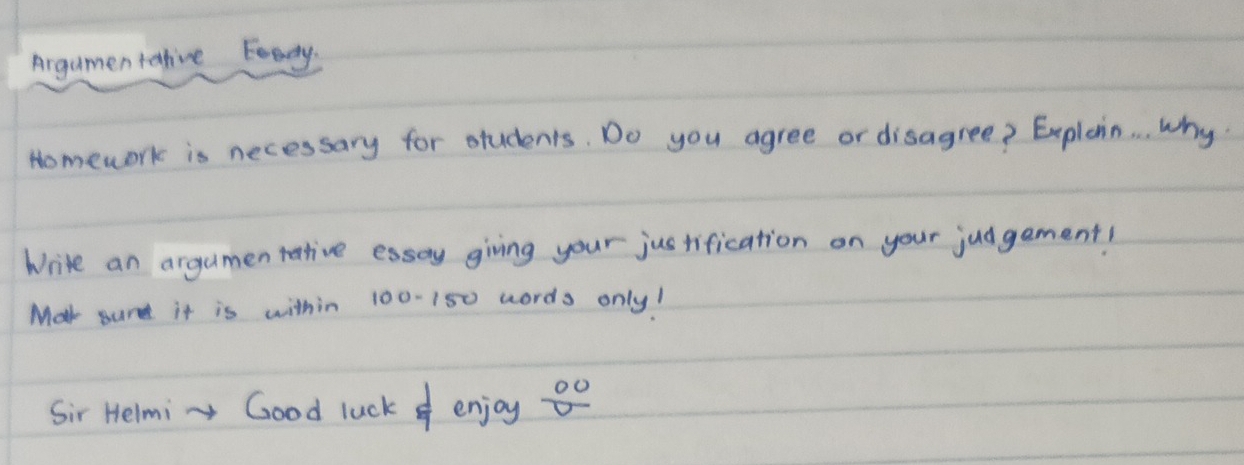 Argumentative Essay.
Homework is necessary for students. Do you agree or disagree? Explain... Why.
Write an argumentative essay giving your justification on your judgement!
Mak sure it is within 100-150 words only!
Sir Helmi → Good luck & enjoy